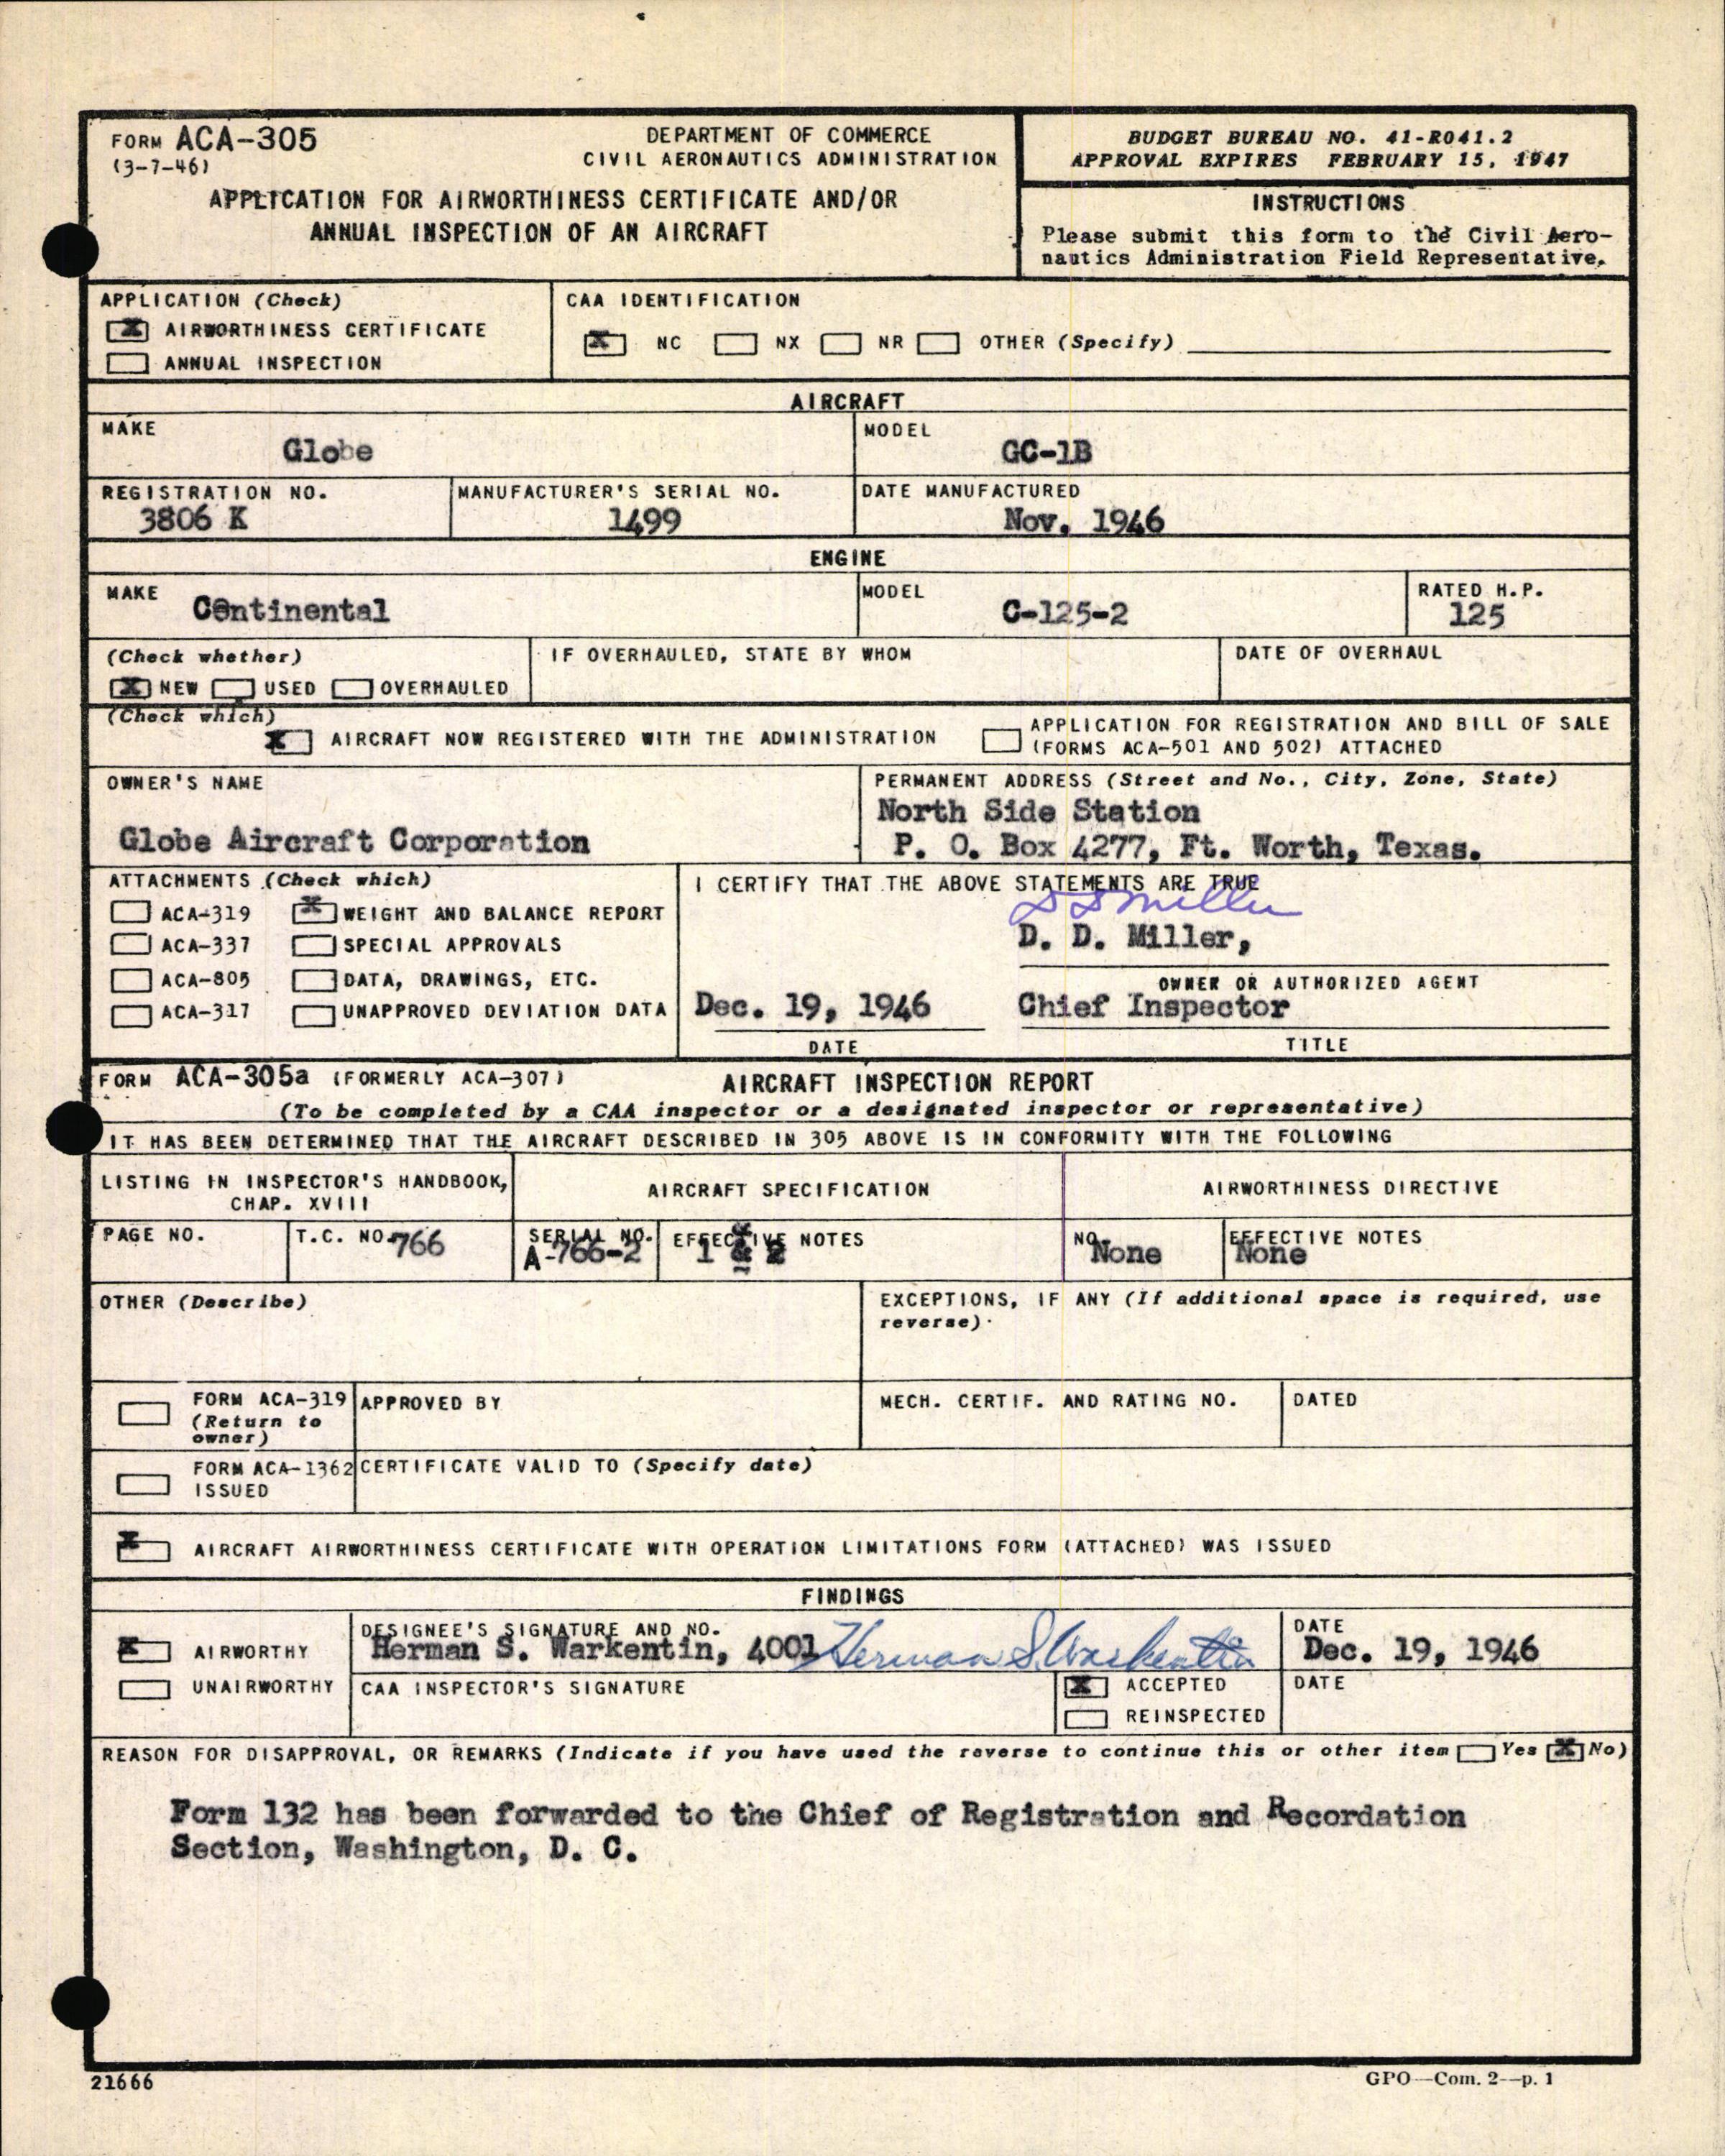 FORM ACA-305
(3-7-46)
DEPARTMENT OF COMMERCE
CIVIL AERONAUTICS ADMINISTRATION
APPLICATION FOR AIRWORTHINESS CERTIFICATE AND/OR
ANNUAL INSPECTION OF AN AIRCRAFT
BUDGET BUREAU NO. 41-R041.2
APPROVAL EXPIRES FEBRUARY 15, 1947
INSTRUCTIONS
Please submit this form to the Civil Aero-
nautics Administration Field Representative.
APPLICATION (Check)
X AIRWORTHINESS CERTIFICATE
ANNUAL INSPECTION
CAA IDENTIFICATION
X NC NX NR OTHER (Specify)
AIRCRAFT
MAKE
Globe
MODEL
GC-1B
REGISTRATION NO.
3806 K
MANUFACTURER'S SERIAL NO.
1499
DATE MANUFACTURED
Nov. 1946
ENGINE
MAKE
Continental
MODEL
C-125-2
RATED H.P.
125
(Check whether)
X NEW USED OVERHAULED
IF OVERHAULED, STATE BY WHOM
DATE OF OVERHAUL
(Check which)
X AIRCRAFT NOW REGISTERED WITH THE ADMINISTRATION
APPLICATION FOR REGISTRATION AND BILL OF SALE
(FORMS ACA-501 AND 502) ATTACHED
OWNER'S NAME
Globe Aircraft Corporation
PERMANENT ADDRESS (Street and No., City, Zone, State)
North Side Station
P. O. Box 4277, Ft. Worth, Texas.
ATTACHMENTS (Check which)
ACA-319 X WEIGHT AND BALANCE REPORT
ACA-337 SPECIAL APPROVALS
ACA-805 DATA, DRAWINGS, ETC.
ACA-317 UNAPPROVED DEVIATION DATA
I CERTIFY THAT THE ABOVE STATEMENTS ARE TRUE
D D Miller
D. D. Miller,
OWNER OR AUTHORIZED AGENT
Dec. 19, 1946 Chief Inspector
DATE TITLE
FORM ACA-305a (FORMERLY ACA-307) AIRCRAFT INSPECTION REPORT
(To be completed by a CAA inspector or a designated inspector or representative)
IT HAS BEEN DETERMINED THAT THE AIRCRAFT DESCRIBED IN 305 ABOVE IS IN CONFORMITY WITH THE FOLLOWING
LISTING IN INSPECTOR'S HANDBOOK,
CHAP. XVIII
AIRCRAFT SPECIFICATION
AIRWORTHINESS DIRECTIVE
PAGE NO.
T.C. NO. 766
SERIAL NO.
A-766-2
EFFECTIVE NOTES
1 & 2
NO.
None
EFFECTIVE NOTES
None
OTHER (Describe)
EXCEPTIONS, IF ANY (If additional space is required, use
reverse).
FORM ACA-319
(Return to
owner)
APPROVED BY
MECH. CERTIF. AND RATING NO.
DATED
FORM ACA-1362
ISSUED
CERTIFICATE VALID TO (Specify date)
X AIRCRAFT AIRWORTHINESS CERTIFICATE WITH OPERATION LIMITATIONS FORM (ATTACHED) WAS ISSUED
FINDINGS
X AIRWORTHY
UNAIRWORTHY
DESIGNEE'S SIGNATURE AND NO.
Herman S. Warkentin, 4001 Herman S. Warkentin
DATE
Dec. 19, 1946
CAA INSPECTOR'S SIGNATURE
X ACCEPTED
REINSPECTED
DATE
REASON FOR DISAPPROVAL, OR REMARKS (Indicate if you have used the reverse to continue this or other item Yes X No)
Form 132 has been forwarded to the Chief of Registration and Recordation
Section, Washington, D. C.
21666
GPO—Com. 2—p. 1